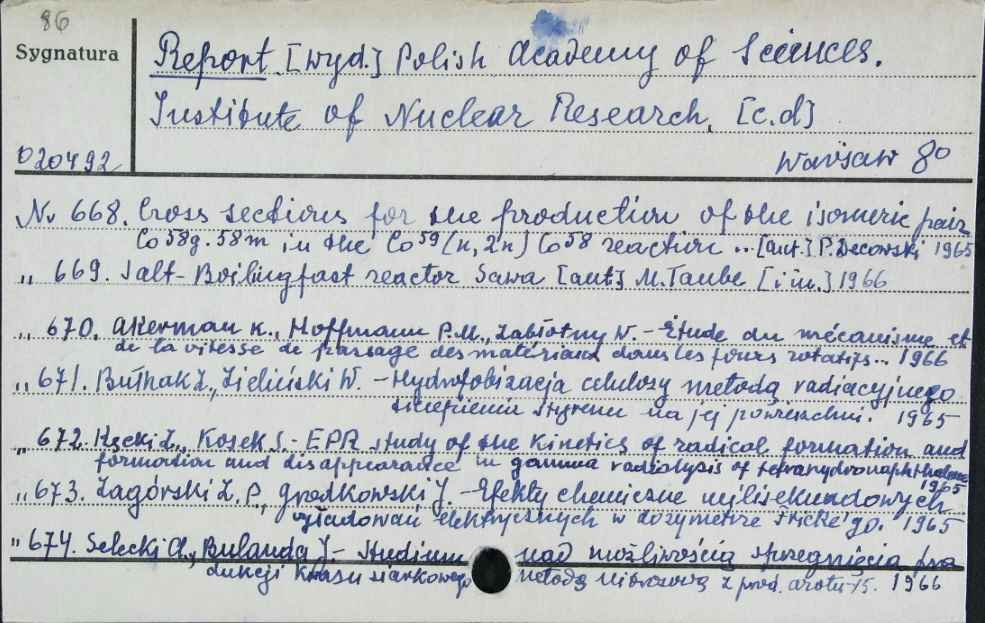 86
Sygnatura
Report [wyd.] Polish Academy of Sciences.
Institute of Nuclear Research. [c.d]
020492
Warsaw 8°
Nr 668. Cross sections for the production of the isomeric pair
Co 58g. 58m in the Co 59 (n, 2n) Co 58 reaction ... [aut.] P. Decowski 1965
„ 669. Salt-Boiling fast reactor Sawa [aut] M. Taube [i in.] 1966
„ 670. Akerman K., Hoffmann P.M., Zabłotny W. - Étude du mécanisme et
de la vitesse de passage des matériaux dans les fours rotatifs... 1966
„ 671. Butnak Z., Zieliński W. - Hydrofobizacja celulozy metodą radiacyjnego
szczepienia styrenu na jej powierzchni. 1965
„ 672. Kęcki Z., Kosek S. - EPR study of the kinetics of radical formation and
formation and disappearance in gamma radiolysis of tetrahydronaphthalene
1965
„ 673. Zagórski Z. P., Grodkowski J. - Efekty chemiczne milisekundowych
wyładowań elektrycznych w dozymetrze Fricke'go. 1965
„ 674. Selecki A., Bulanda J - Studium nad możliwością sprzęgnięcia pro
dukcji kwasu siarkowego metodą nitrozową z prod. azotu-15. 1966